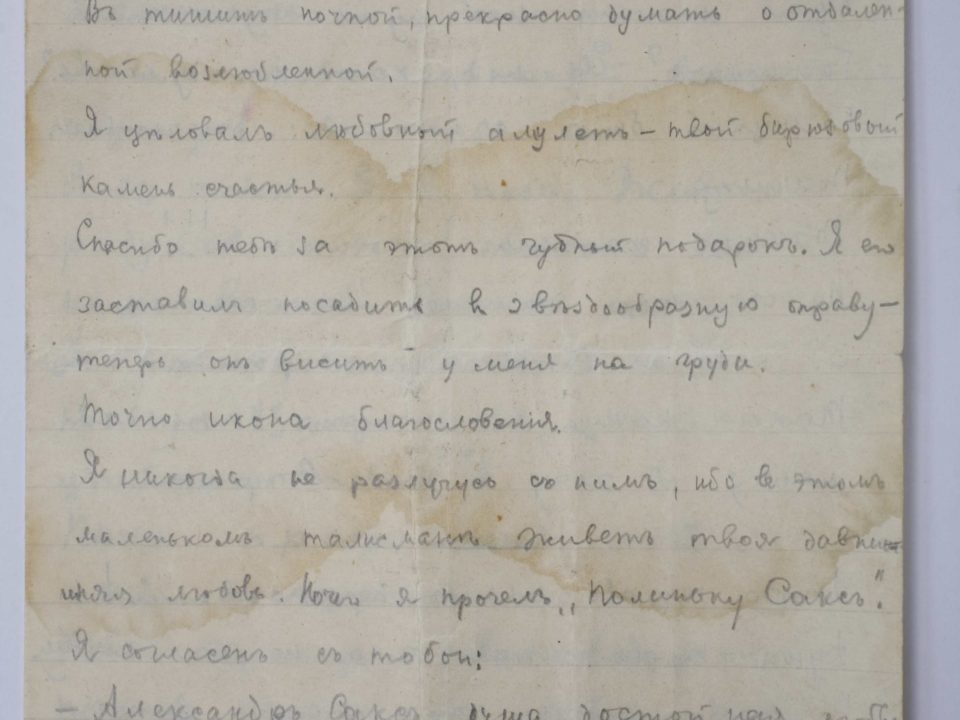 Въ тишитъ ночной, прекрасно думать о отдален-
ной возлюбленной.
Я цѣловалъ любовный амулетъ – твой бирюзовый
камень счастья.
Спасибо тебѣ за этотъ чудный подарокъ. Я его
заставилъ посадить въ звѣздообразную оправу –
теперь онъ виситъ у меня на груди.
Точно икона благословенія.
Я никогда не разлучусь съ нимъ, ибо въ этомъ
маленькомъ талисманѣ живетъ твоя давни-
шняя любовь. Ночью я прочелъ „Полиньку Саксъ".
Я согласенъ съ тобой:
– Александръ Саксъ – душа